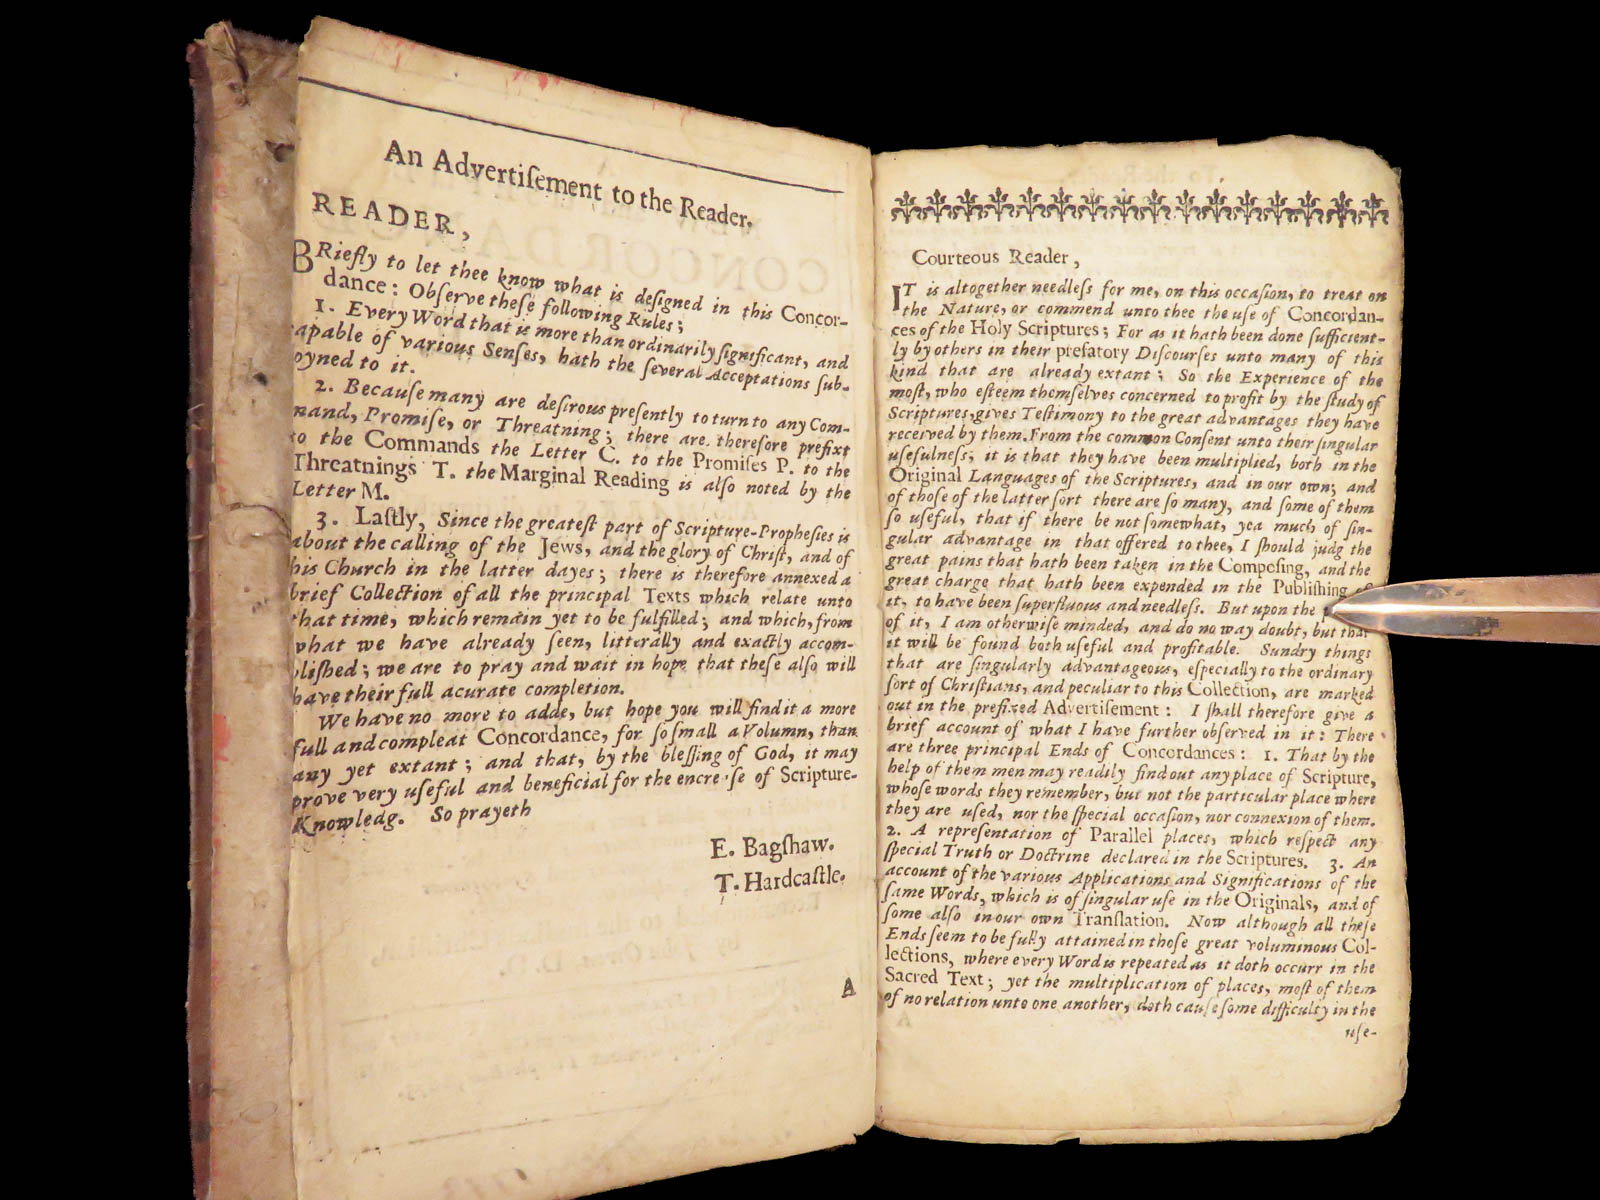 An Advertiſement to the Reader.
READER,
BRiefly to let thee know what is deſigned in this Concor-
dance: Obſerve theſe following Rules;
1. Every Word that is more than ordinarily ſignificant, and
apable of various Senſes, hath the ſeveral Acceptations ſub-
oyned to it.
2. Becauſe many are deſirous preſently to turn to any Com-
mand, Promiſe, or Threatning; there are therefore prefixt
to the Commands the Letter C. to the Promiſes P. to the
Threatnings T. the Marginal Reading is alſo noted by the
Letter M.
3. Laſtly, Since the greateſt part of Scripture-Propheſies is
about the calling of the Jews, and the glory of Chriſt, and of
his Church in the latter dayes; there is therefore annexed a
brief Collection of all the principal Texts which relate unto
that time, which remain yet to be fulfilled; and which, from
what we have already ſeen, litterally and exactly accom-
pliſhed; we are to pray and wait in hope that theſe alſo will
have their full acurate completion.
We have no more to adde, but hope you will find it a more
full and compleat Concordance, for ſo ſmall a Volumn, than
any yet extant; and that, by the bleſſing of God, it may
prove very uſeful and beneficial for the encreaſe of Scripture-
Knowledg. So prayeth
E. Bagſhaw.
T. Hardcaſtle.
A
Courteous Reader,
IT is altogether needleſs for me, on this occaſion, to treat on
the Nature, or commend unto thee the uſe of Concordan-
ces of the Holy Scriptures; For as it hath been done ſufficient-
ly by others in their prefatory Diſcourſes unto many of this
kind that are already extant; So the Experience of the
moſt, who eſteem themſelves concerned to profit by the ſtudy of
Scriptures, gives Teſtimony to the great advantages they have
received by them. From the common Conſent unto their ſingular
uſefulneſs; it is that they have been multiplied, both in the
Original Languages of the Scriptures, and in our own; and
of thoſe of the latter ſort there are ſo many, and ſome of them
ſo uſeful, that if there be not ſomewhat, yea much of ſin-
gular advantage in that offered to thee, I ſhould judg the
great pains that hath been taken in the Compoſing, and the
great charge that hath been expended in the Publiſhing of
it, to have been ſuperfluous and needleſs. But upon the
of it, I am otherwiſe minded, and do no way doubt, but that
it will be found both uſeful and profitable. Sundry things
that are ſingularly advantageous, eſpecially to the ordinary
ſort of Chriſtians, and peculiar to this Collection, are marked
out in the prefixed Advertiſement: I ſhall therefore give a
brief account of what I have further obſerved in it: There
are three principal Ends of Concordances: 1. That by the
help of them men may readily find out any place of Scripture,
whoſe words they remember, but not the particular place where
they are uſed, nor the ſpecial occaſion, nor connexion of them.
2. A repreſentation of Parallel places, which reſpect any
ſpecial Truth or Doctrine declared in the Scriptures. 3. An
account of the various Applications and Significations of the
ſame Words, which is of ſingular uſe in the Originals, and of
ſome alſo in our own Tranſlation. Now although all theſe
Ends ſeem to be fully attained in thoſe great voluminous Col-
lections, where every Word is repeated as it doth occurr in the
Sacred Text; yet the multiplication of places, moſt of them
of no relation unto one another, doth cauſe ſome difficulty in the
uſe-